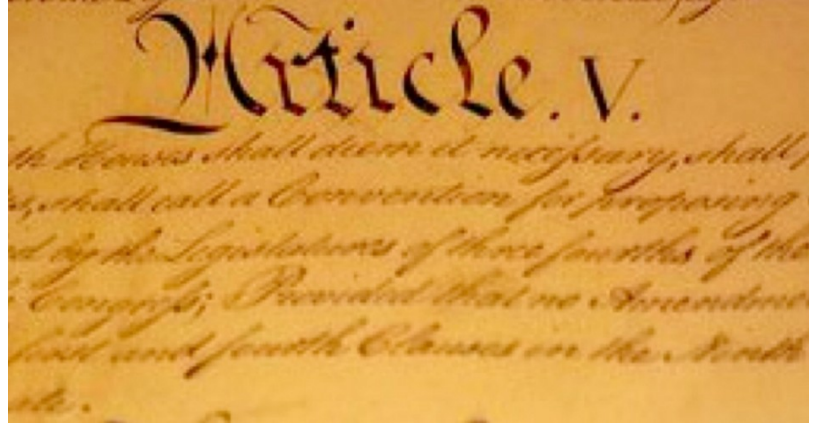 Article. V.
Houses shall deem it necessary, shall
shall call a Convention for proposing
by the Legislatures of three fourths of the
Congress; Provided that no
first and fourth Clauses in the Ninth